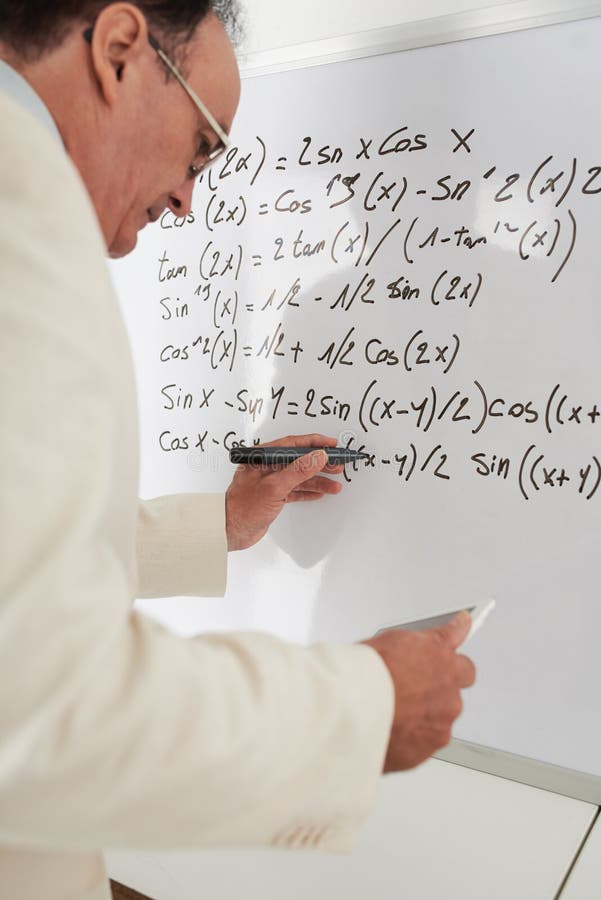 (2x) = 2sn x Cos x
Cos (2x) = Cos ^19 (x) - Sn ^1 2 (x) 2
tan (2x) = 2 tan (x) / (1-tan ^12 (x))
Sin ^19 (x) = 1/2 - 1/2 Sin (2x)
cos ^12 (x) = 1/2 + 1/2 Cos (2x)
Sin X - Sin Y = 2 Sin ((x-y)/2) cos ((x+
Cos X - Cos ((x-y)/2 Sin ((x+y)